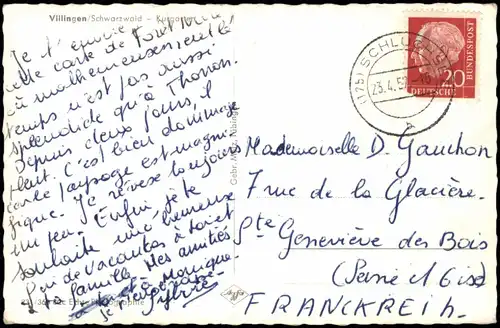 Villingen/Schwarzwald – Kurgarten
Je t'envoie
cette carte de Forêt Noire
où malheureusement le
temps n'est pas aussi
splendide qu'à Thonon.
Depuis deux jours, il
pleut. C'est bien dommage
car le paysage est magni
fique. Je révise toujours
un peu. Enfin je te
souhaite une heureuse
fin de vacances à toi et
à ta famille. Mes amitiés
à Monique
Sylvie
Gebr. Metz, Tübingen
(17b) SCHLUCHSEE
23.4.57
20
DEUTSCHE
BUNDESPOST
Mademoiselle D. Gauchon
7 rue de la Glacière
Ste Geneviève des Bois
(Seine et Oise)
FRANCKREICH.